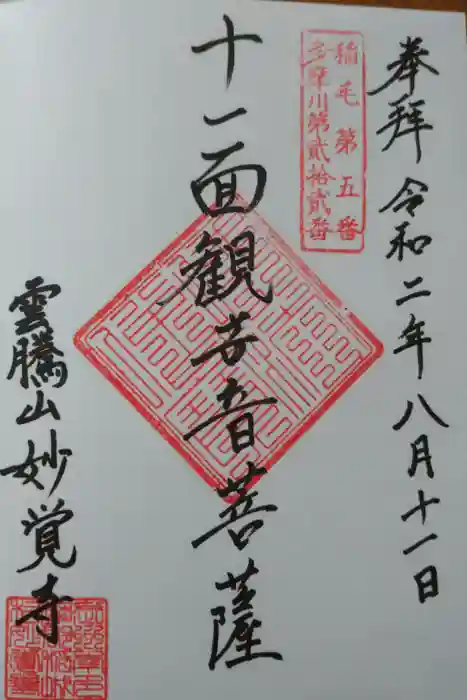 奉拝 令和二年八月十一日
稲毛第五番
多摩川第貳拾貳番
十一面観世音菩薩
雲騰山妙覚寺